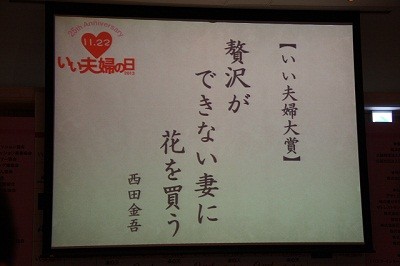 25th Anniversary
11.22
いい夫婦の日
【いい夫婦大賞】
贅沢が
できない妻に
花を買う
西田金吾